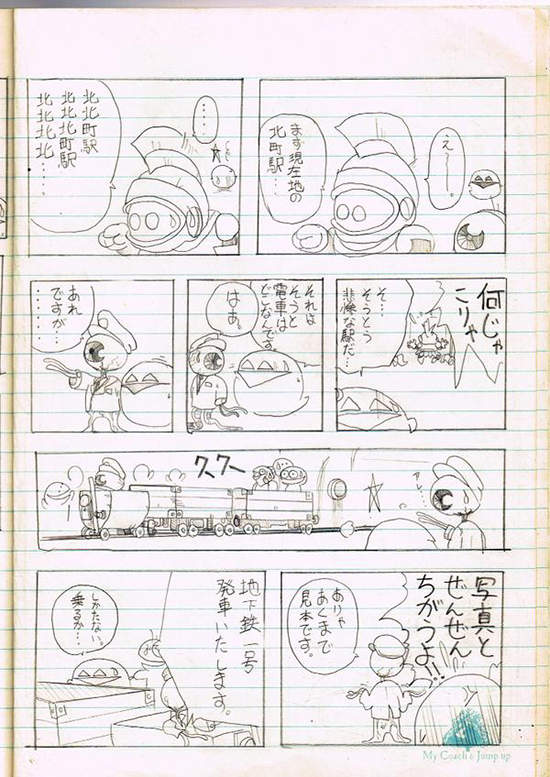 えー。
まず現在地の
北町駅…
……
北北町駅
北北北町駅
北北北北……
何じゃ
こりゃー
そ…
そうとう
悲惨な駅だ…
それは
そうと
電車は
どこなんです
はあ。
あれ
ですが…
……
アレ…
クスクス
写真と
ぜんぜん
ちがうよ!!
ありゃ
あくまで
見本です。
地下鉄一号
発車いたします。
しかたない。
乗るか…
My Coach & Jump up